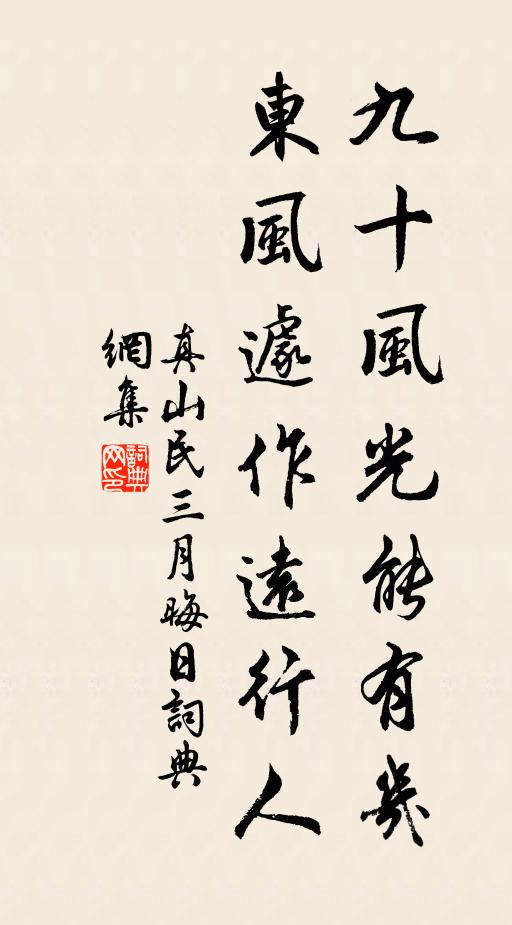 九十風光能有幾
東風遽作遠行人
真山民三月晦日詞典
網集
詞典
网印